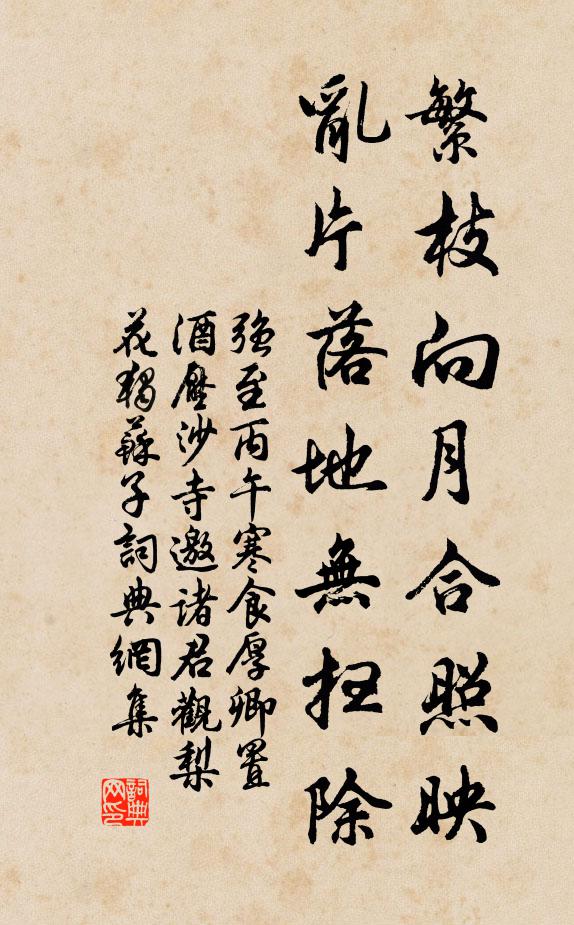 繁枝向月合照映
亂片落地無扫除
強至丙午寒食厚卿置
酒壓沙寺邀諸君觀梨
花獨蘇子詞典網集
詞典
网印